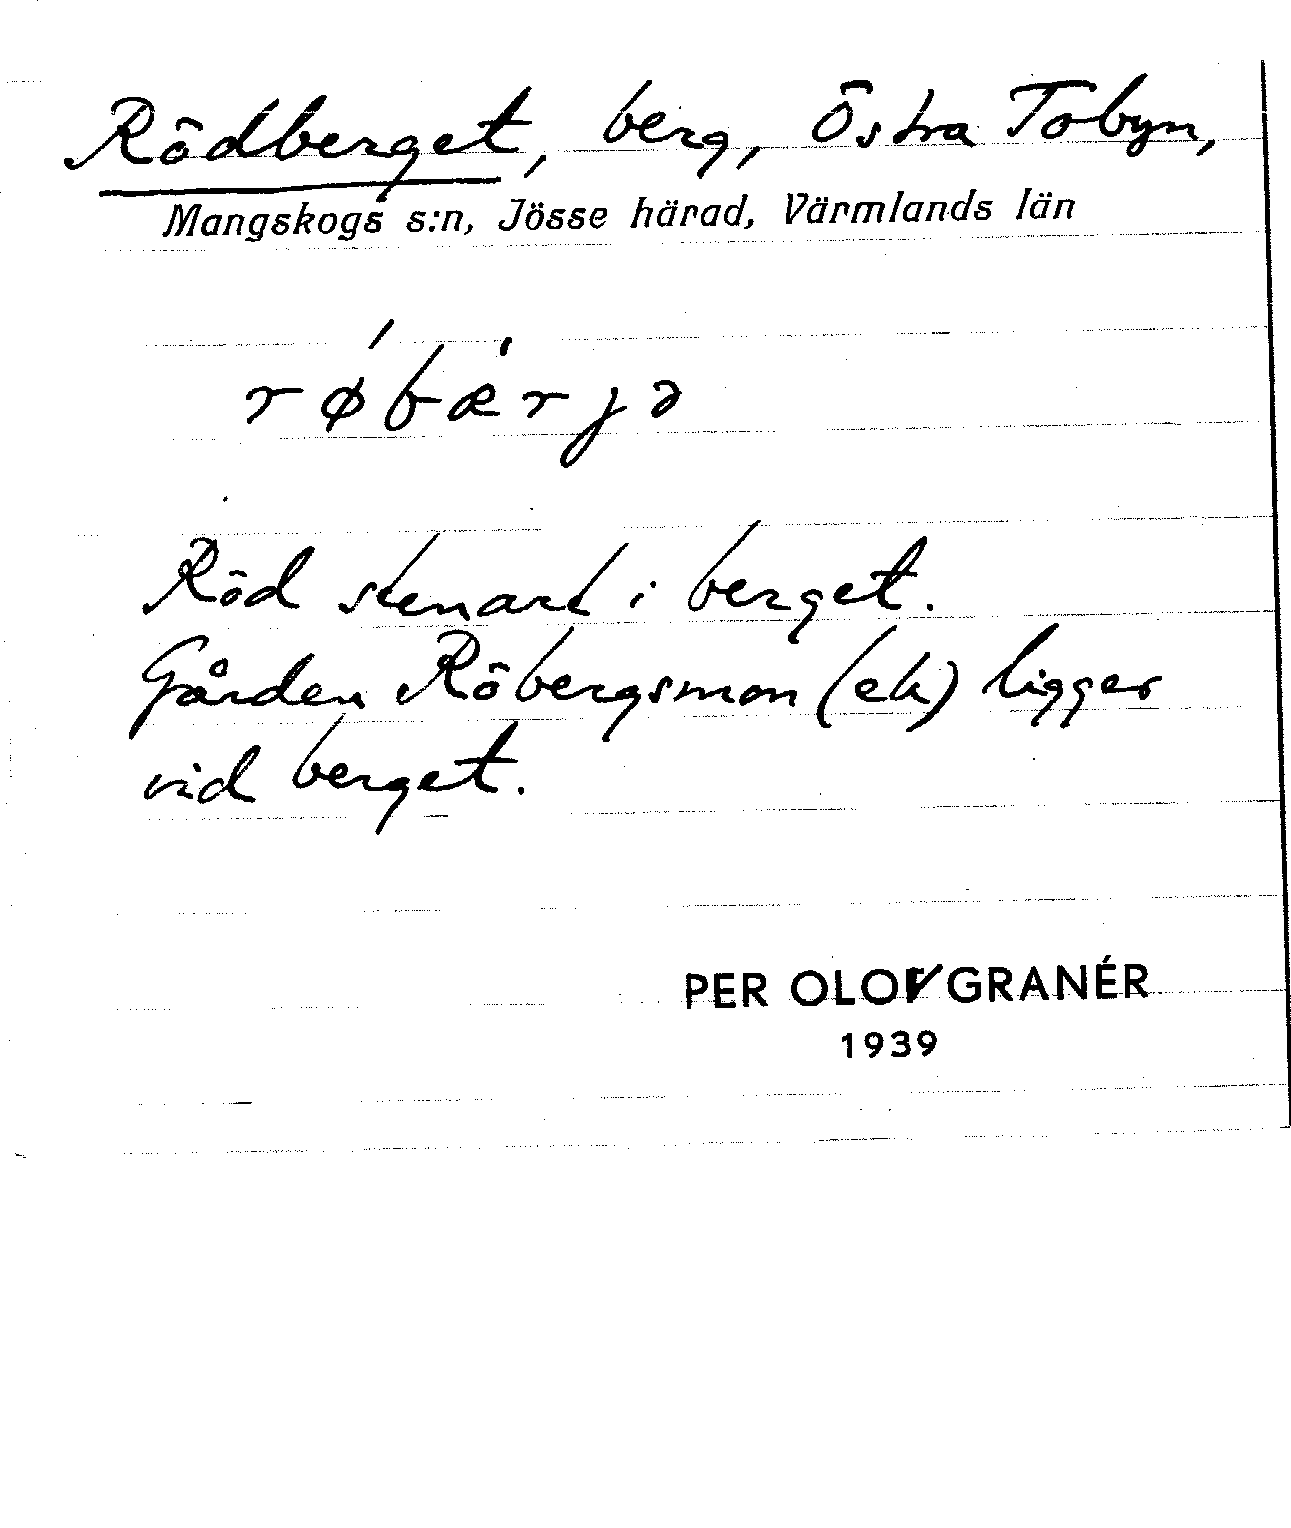 Rödberget, berg, Östra Tobyn,
Mangskogs s:n, Jösse härad, Värmlands län
rǿbæ̀rjə
Röd stenart i berget.
Gården Röbergsmon (ek) ligger
vid berget.
PER OLOV GRANÉR
1939